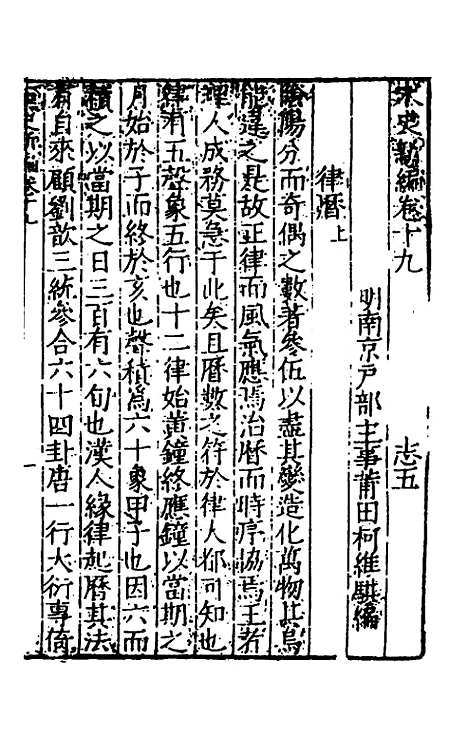 宋史新編卷十九　　志五
明南京戶部主事莆田柯維騏編
律曆上
陰陽分而奇偶之數著參伍以盡其變造化萬物其烏
能違之是故正律而風氣應焉治曆而時序協焉王者
理人成務莫急于此矣且曆數之符於律人都可知也
律有五聲象五行也十二律始黃鐘終應鐘以當期之
月始於子而終於亥也聲積爲六十象甲子也因六而
積之以當期之日三百有六旬也漢人緣律起曆其法
有自來顧劉歆三統參合六十四卦唐一行大衍專倚